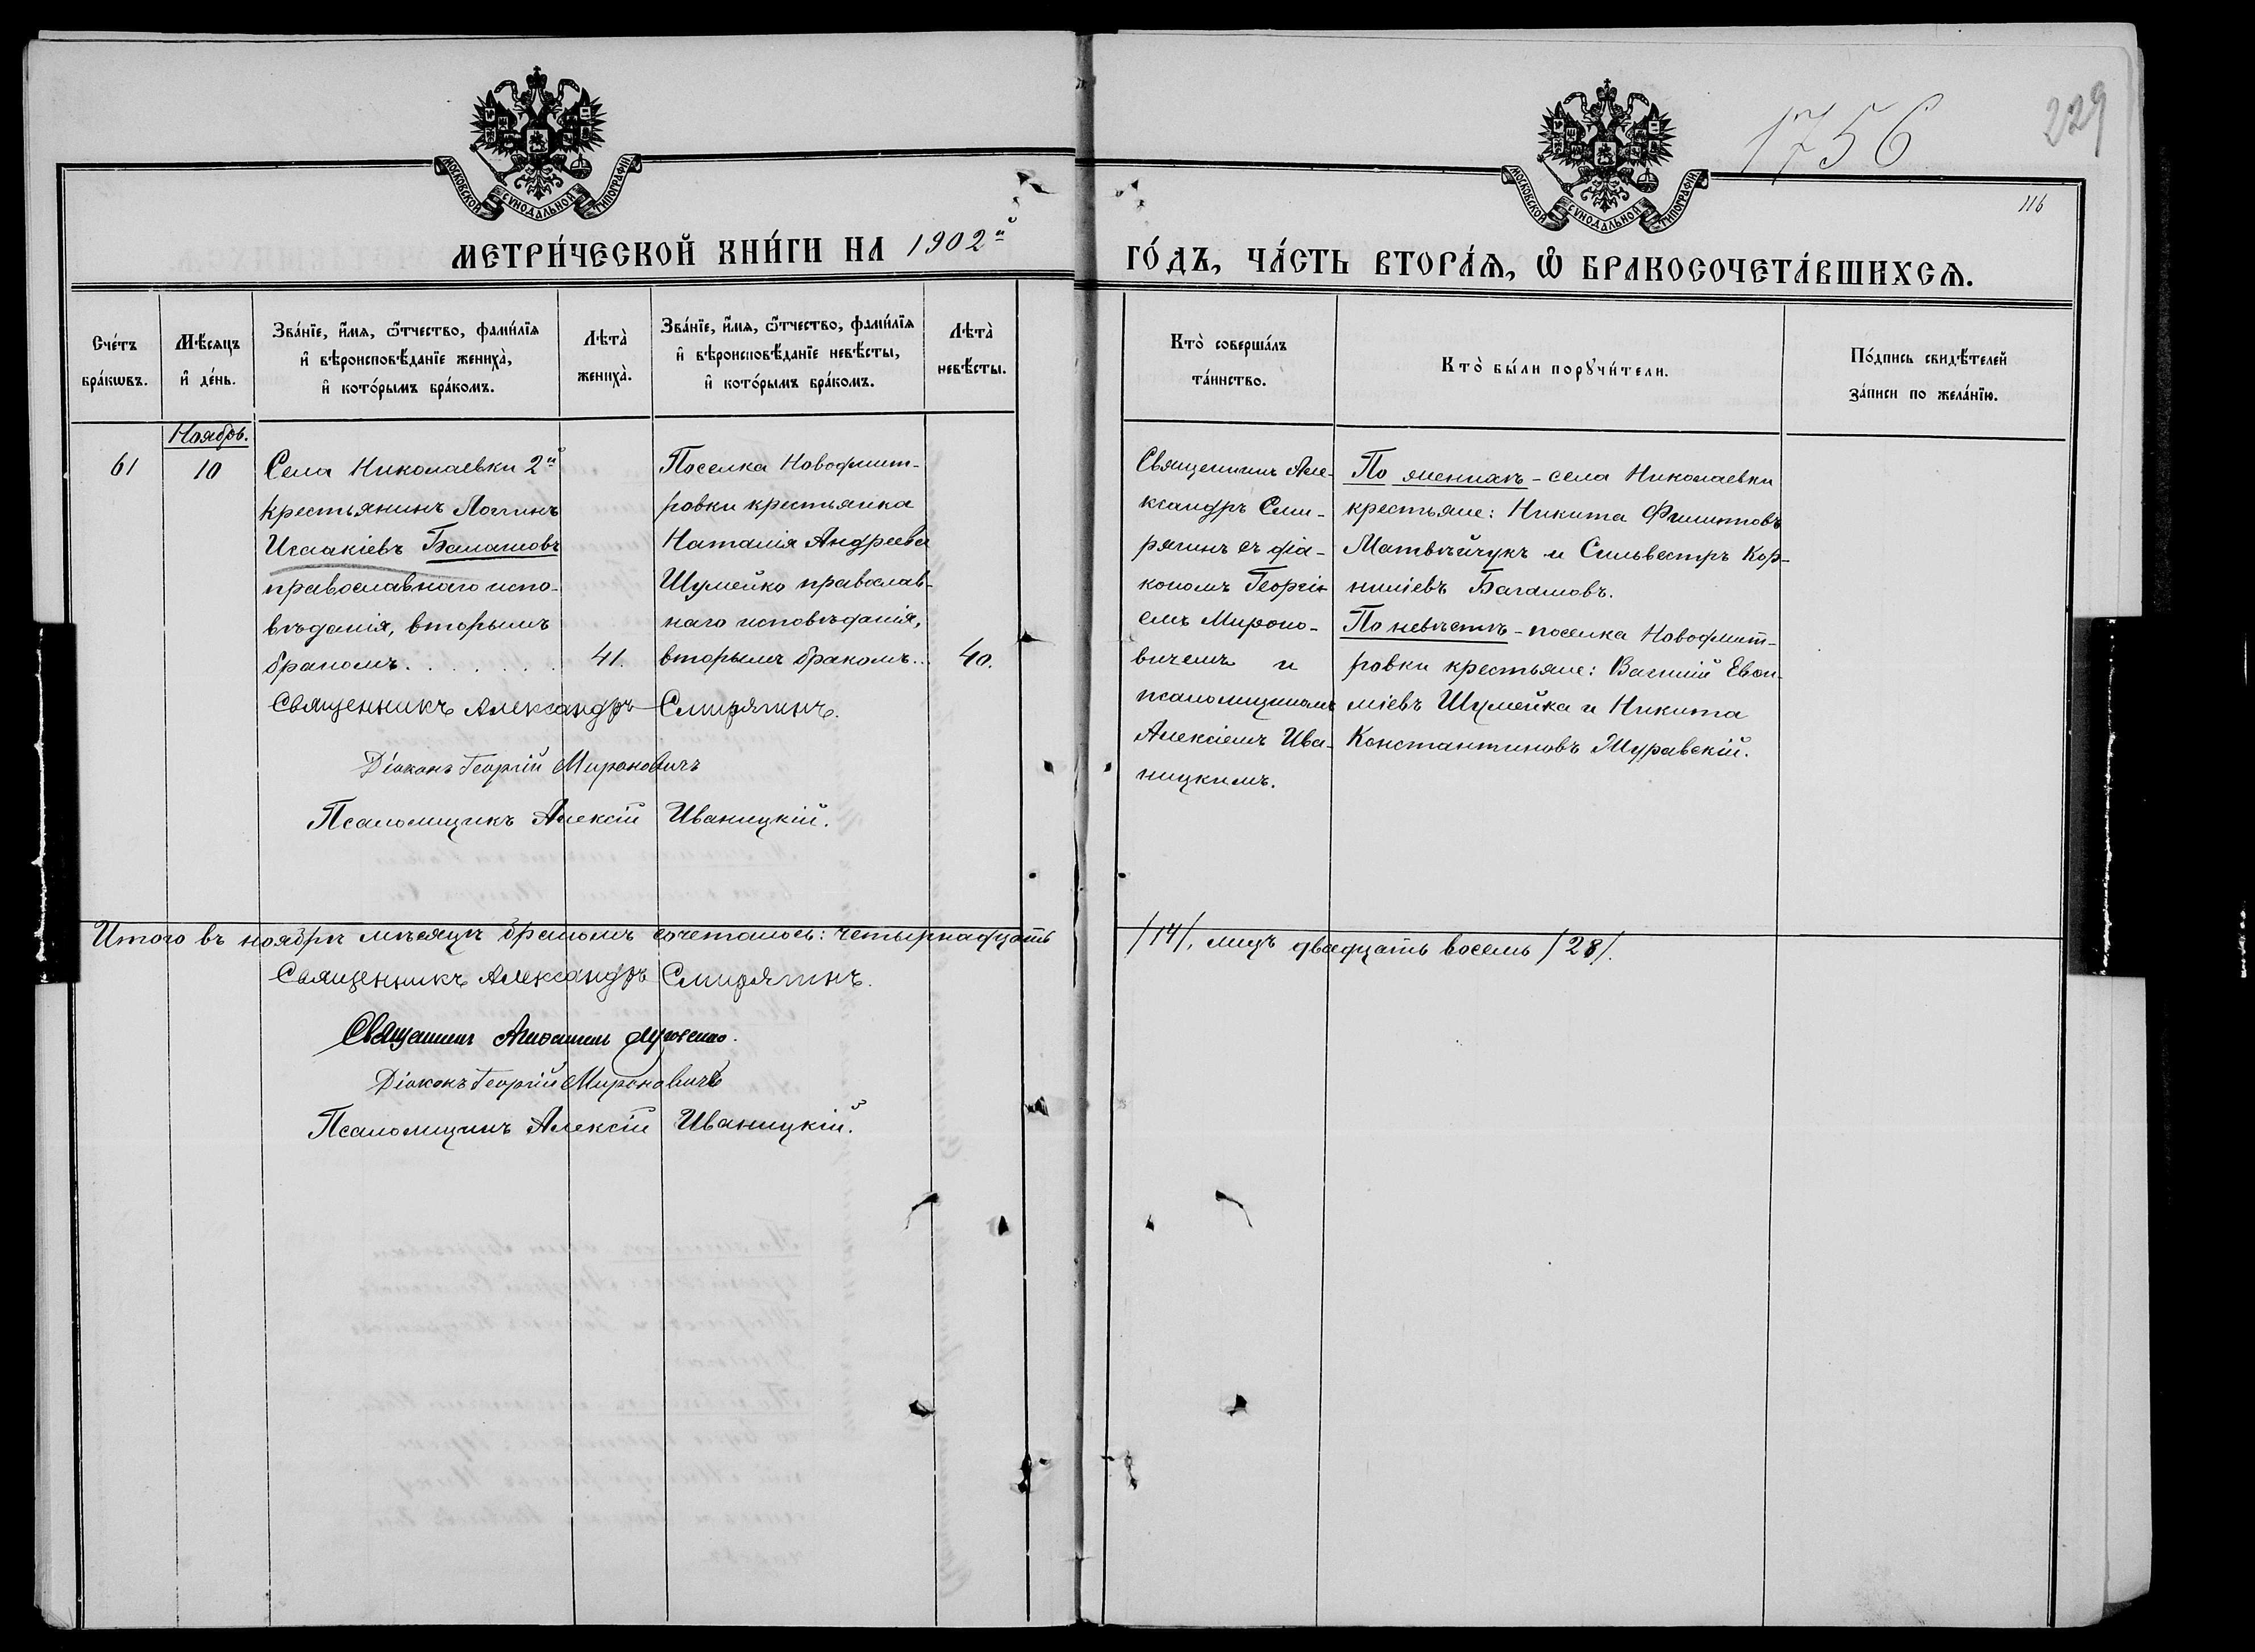 1756
229
116
МОСКОВСКОЙ СѴНОДАЛЬНОЙ ТИПОГРАФІИ
МОСКОВСКОЙ СѴНОДАЛЬНОЙ ТИПОГРАФІИ
МЕТРИ́ЧЕСКОЙ КНИ́ГИ НА 1902й
ГО́ДЪ, ЧА́СТЬ ВТОРА́Ѧ, Ѡ҆ БРАКОСОЧЕТА́ВШИХСѦ.
Сче́тъ бра́кѡвъ.
Мѣ́сяцъ и҆ де́нь.
Зва́нїе, и҆́мѧ, ѻ҆́тчество, фами́лїѧ и҆ вѣроисповѣ́данїе жениха̀, и҆ кото́рымъ бра́комъ.
Лѣта̀ жениха̀.
Зва́нїе, и҆́мѧ, ѻ҆́тчество, фами́лїѧ и҆ вѣроисповѣ́данїе невѣ́сты, и҆ кото́рымъ бра́комъ.
Лѣта̀ невѣ́сты.
Кто̀ соверша́лъ та́инство.
Кто̀ бы́ли порꙋчи́тели.
По́дпись свидѣ́телей за́писи по жела́нїю.
Ноябрь.
61
10
Села Николаевки 2й
крестьянинъ Логгинъ
Исаакіевъ Балашовъ
православнаго испо-
вѣданія, вторымъ
бракомъ. . . . . . .
41.
Поселка Новодмит-
ровки крестьянка
Наталія Андреева
Шумейко православ-
наго исповѣданія,
вторымъ бракомъ...
40.
Священникъ Але-
ксандръ Сми-
рягинъ съ діа-
кономъ Георгі-
емъ Мироно-
вичемъ и
псаломщикомъ
Алексіемъ Ива-
ницкимъ.
По женихѣ - села Николаевки
крестьяне: Никита Филиповъ
Матвѣйчукъ и Сильвестръ Кор-
ниліевъ Балашовъ.
По невѣстѣ - поселка Новодмит-
ровки крестьяне: Василій Евои-
міевъ Шумейка и Никита
Константиновъ Журавскій.
Священникъ Александръ Смирягинъ.
Діаконъ Георгій Мироновичъ
Псаломщикъ Алексій Иваницкій.
Итого въ ноябрѣ мѣсяцѣ бракомъ сочеталось: четырнадцать /14/, лицъ двадцать восемь /28/.
Священникъ Александръ Смирягинъ.
Священникъ
Діаконъ Георгій Мироновичъ
Псаломщикъ Алексій Иваницкій.